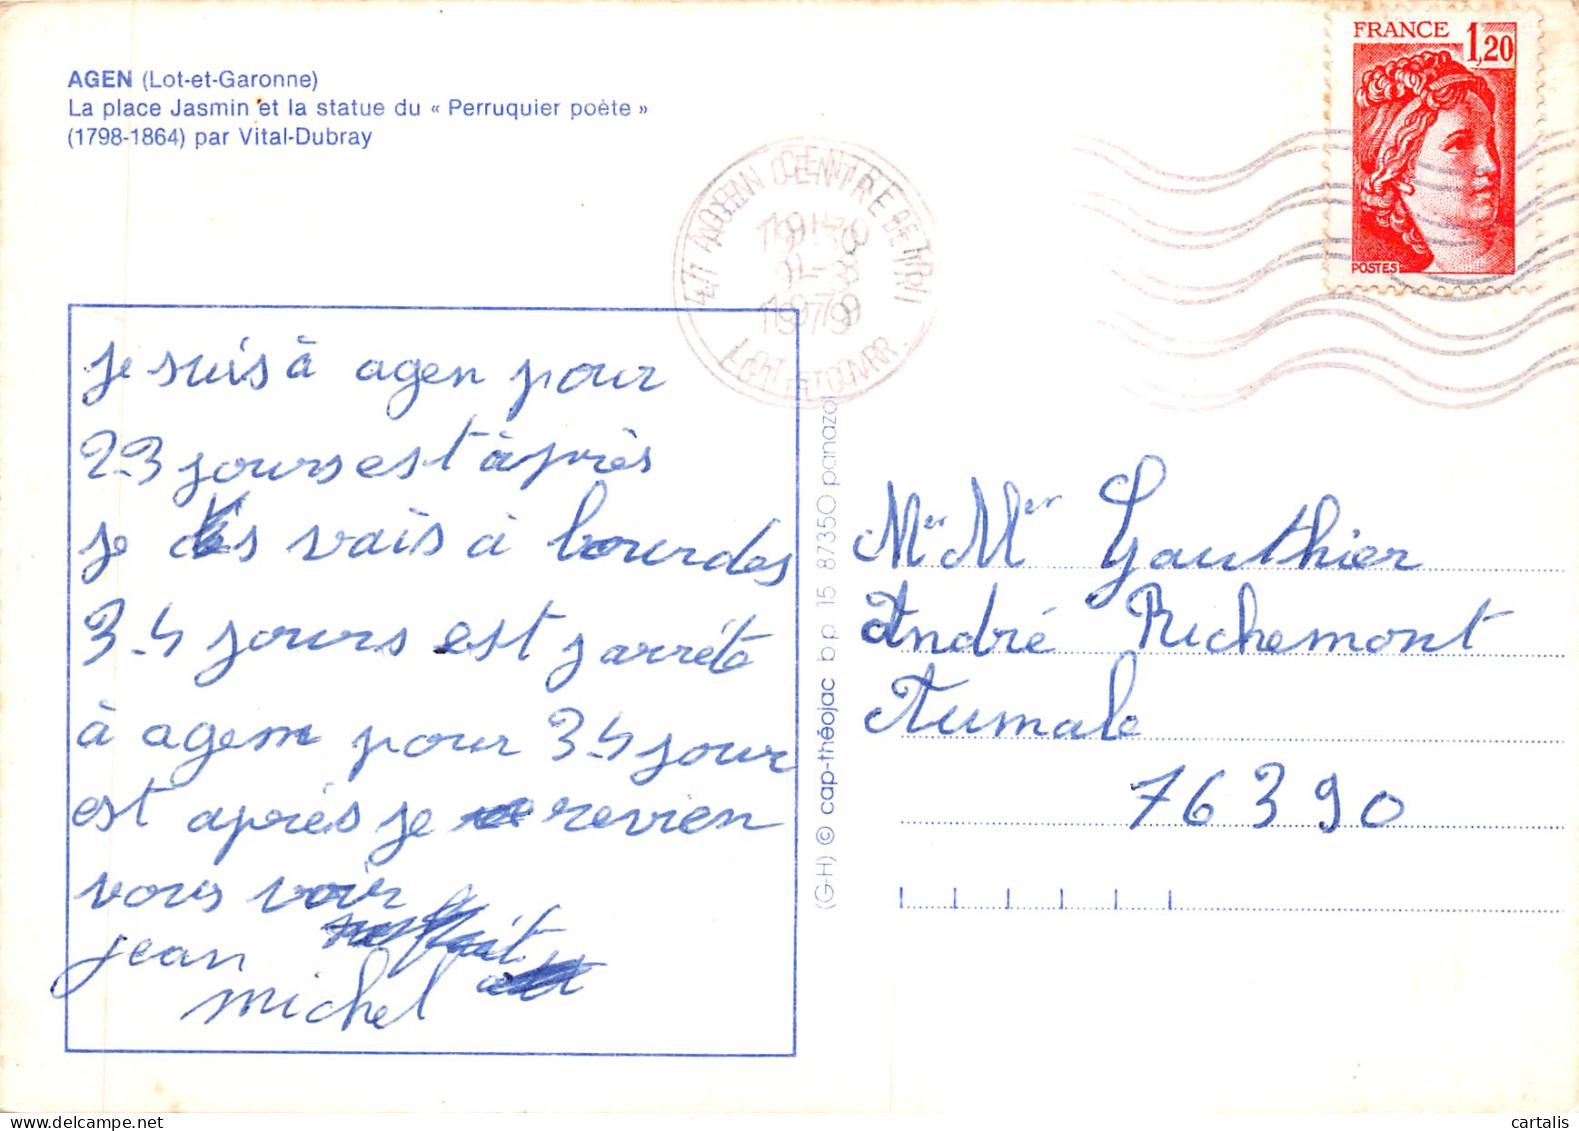 AGEN (Lot-et-Garonne)
La place Jasmin et la statue du « Perruquier poète »
(1798-1864) par Vital-Dubray
FRANCE 1,20
POSTES
47 AGEN CENTRE DE TRI
1979
LOT ET GAR.
je suis à agen pour
2-3 jours est àprès
je vais à lourdes
3-4 jours est jarrête
à agen pour 3-4 jour
est après je revien
vous voir
jean
michel
(G-H) © cap-théojac b.p 15 87350 panazol
Mer Mer Gauthier
André Richemont
Aumale
76390
cartalis | delcampe.net